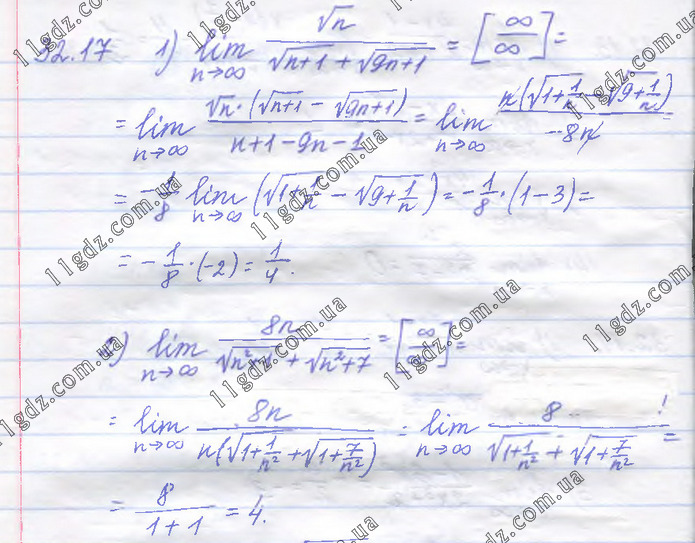 32.17 1) lim_{n→∞} √n / (√(n+1) + √(9n+1)) = [∞/∞] =
= lim_{n→∞} √n · (√(n+1) − √(9n+1)) / (n+1−9n−1) = lim_{n→∞} n(√(1+1/n) − √(9+1/n)) / −8n =
= −1/8 lim_{n→∞} (√(1+1/n) − √(9+1/n)) = −1/8 · (1−3) =
= −1/8 · (−2) = 1/4.
2) lim_{n→∞} 8n / (√(n²+1) + √(n²+7)) = [∞/∞] =
= lim_{n→∞} 8n / n(√(1+1/n²) + √(1+7/n²)) = lim_{n→∞} 8 / (√(1+1/n²) + √(1+7/n²)) =
= 8 / (1+1) = 4.
11gdz.com.ua
11gdz.com.ua
11gdz.com.ua
11gdz.com.ua
11gdz.com.ua
11gdz.com.ua
11gdz.com.ua
11gdz.com.ua
11gdz.com.ua
11gdz.com.ua